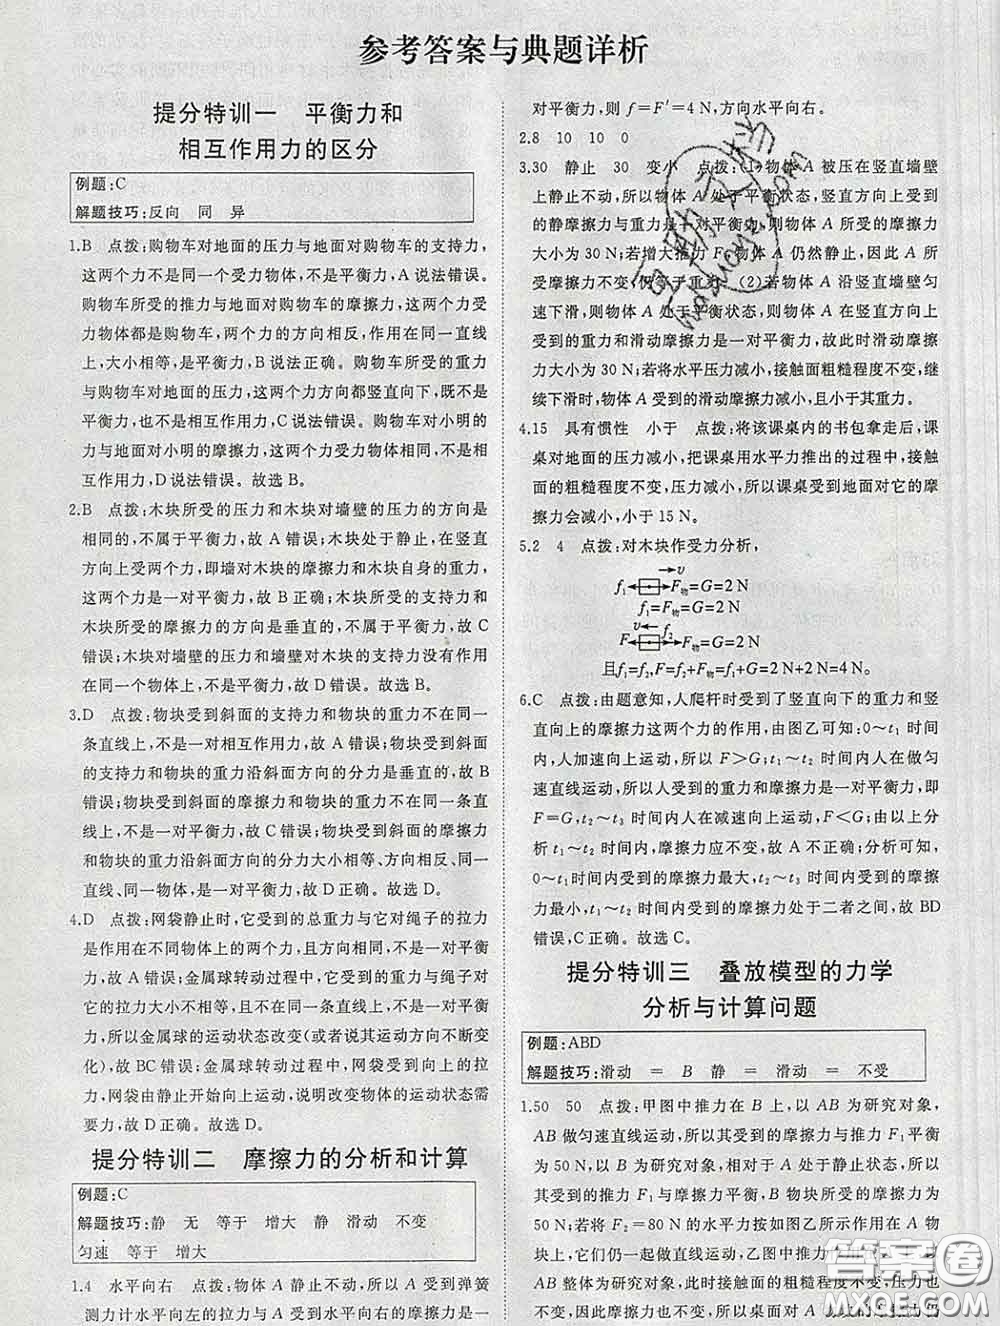 参考答案与典题详析
提分特训一　平衡力和
相互作用力的区分
例题:C
解题技巧:反向　同　异
1.B　点拨:购物车对地面的压力与地面对购物车的支持力,
这两个力不是同一个受力物体,不是平衡力,A说法错误。
购物车所受的推力与地面对购物车的摩擦力,这两个力受
力物体都是购物车,两个力的方向相反,作用在同一直线
上,大小相等,是平衡力,B说法正确。购物车所受的重力
与购物车对地面的压力,这两个力方向都竖直向下,既不是
平衡力,也不是相互作用力,C说法错误。购物车对小明的
力与小明对购物车的摩擦力,这两个力受力物体不同,是相
互作用力,D说法错误。故选B。
2.B　点拨:木块所受的压力和木块对墙壁的压力的方向是
相同的,不属于平衡力,故A错误;木块处于静止,在竖直
方向受力平衡,即墙对木块的摩擦力和木块自身的重力,
这两个力为平衡力,故B正确;木块所受的支持力和木块
所受的摩擦力的方向是垂直的,不属于平衡力,故C
错误;木块对墙壁的压力和墙壁对木块的支持力没有作用在
同一个物体上,不是平衡力,故D错误。故选B。
3.D　点拨:物块受到斜面的支持力和物块的重力不在同一
条直线上,不是一对相互作用力,故A错误;物块受到斜面
的支持力和物块的重力沿斜面方向的分力是垂直的,故B
错误;物块受到斜面的摩擦力和物块的重力不在同一条直
线上,不是一对平衡力,故C错误;物块受到斜面的摩擦力
和物块的重力沿斜面方向的分力大小相等、方向相反、同一
直线、同一物体,是一对平衡力,故D正确。故选D。
4.D　点拨:网袋静止时,它受到的总重力与它对绳子的拉力
是作用在不同物体上的两个力,且方向相同,不是一对平衡
力,故A错误;金属球转动过程中,它受到的重力与绳子对
它的拉力大小不相等,且不在同一直线上,不是一对平衡
力,所以金属球的运动状态改变(或者说其运动方向不断变
化),故BC错误;金属球转动过程中,网袋受到向上的拉
力,网袋由静止开始向上运动,说明改变物体的运动状态需
要力,故D正确。故选D。
提分特训二　摩擦力的分析和计算
例题:C
解题技巧:静　无　等于　增大　静　滑动　不变
匀速　等于　增大
1.4　水平向右　点拨:物体A静止不动,所以A受到弹簧
测力计水平向左的拉力与A受到水平向右的摩擦力是一
对平衡力,则f=F′=4 N,方向水平向右。
2.8　10　10　0
3.30　静止　30　变小　点拨:(1)物体A被压在竖直墙壁
上静止不动,所以物体A处于平衡状态,竖直方向上受到
的静摩擦力与重力是一对平衡力,则物体A所受的摩擦力
大小为30 N;若增大推力F,物体A仍然静止,因此A所
受摩擦力不变,仍等于重力。(2)若物体A沿竖直墙壁匀
速下滑,则物体A处于平衡状态,则物体A在竖直方向上
受到的重力和滑动摩擦力是一对平衡力,故此时滑动摩擦
力大小为30 N;若将水平压力减小,接触面粗糙程度不变,继
续下滑时,物体A受到的滑动摩擦力减小,且小于其重力。
4.15　具有惯性　小于　点拨:将该课桌内的书包拿走后,课
桌对地面的压力减小,把课桌用水平力推出的过程中,接触
面的粗糙程度不变,压力减小,所以课桌受到地面对它的摩
擦力会减小,小于15 N。
5.2　4　点拨:对木块作受力分析,
v
f₁ F物=G=2 N
f₁=G=2 N
v f₂
F F物=G=2 N
且f₁=f₂,F=f₂+F物=f₁+G=2 N+2 N=4 N。
6.C　点拨:由题意知,人爬杆时受到了竖直向下的重力和竖
直向上的摩擦力这两个力的作用,由图乙可知:0～t₁时间
内,人加速向上运动,所以F>G;t₁～t₂时间内人在做匀
速直线运动,所以人受到的重力和摩擦力是一对平衡力,即
F=G,t₂～t₃时间内人在减速向上运动,F<G;由以上分
析t₁～t₂时间内,摩擦力应不变,故A不正确;分析可知,
0～t₁时间内受到的摩擦力最大,t₂～t₃时间内受到的摩擦
力最小,t₁～t₂时间内受到的摩擦力处于二者之间,故BD
错误,C正确。故选C。
提分特训三　叠放模型的力学
分析与计算问题
例题:ABD
解题技巧:滑动　=　B　静　=　滑动　=　不受
1.50　50　点拨:甲图中推力在B上,以AB为研究对象,
AB做匀速直线运动,所以其受到的摩擦力与推力F₁平衡
为50 N,以B为研究对象,相对于A处于静止状态,所以
其受到的推力F₁与摩擦力平衡,B物块所受的摩擦力为
50 N;若将F₂=80 N的水平力按如图乙所示作用在A物
块上,它们仍一起做直线运动,乙图中推力在A上,以
AB整体为研究对象,此时接触面的粗糙程度不变,压力也
不变,因此摩擦力不变,所以桌面对A物块的摩擦力仍
答案卷
MXQE.COM